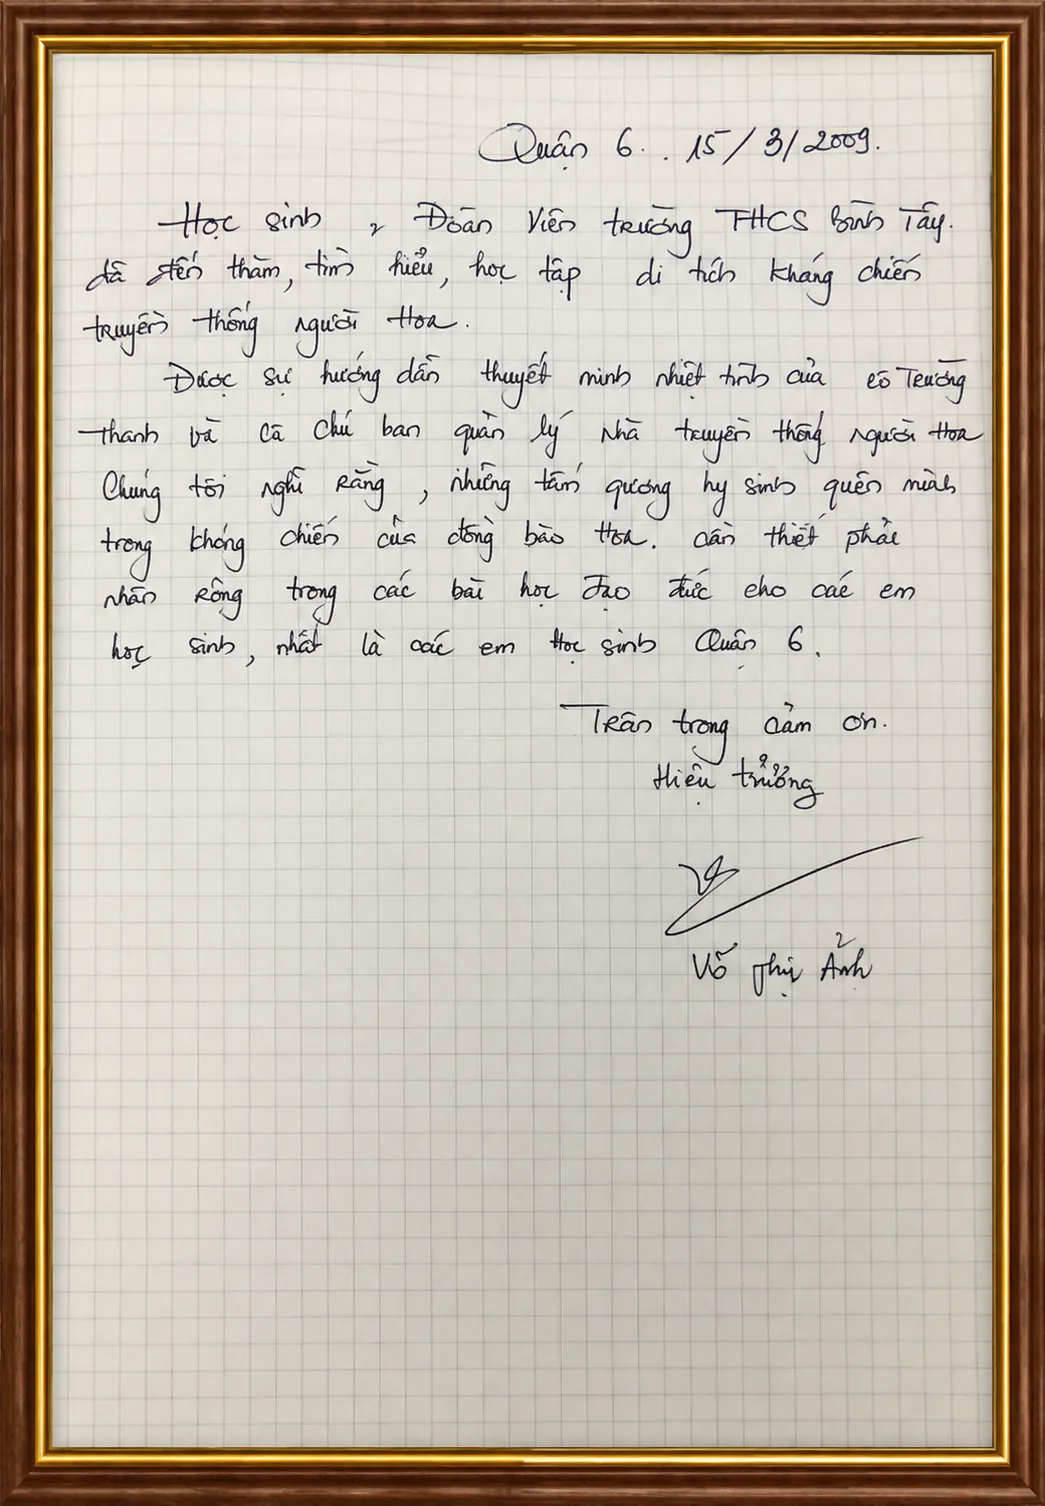 Quận 6. . 15/3/2009.
Học sinh, Đoàn Viên trường THCS Bình Tây.
đã đến thăm, tìm hiểu, học tập di tích kháng chiến
truyền thống người Hoa.
Được sự hướng dẫn thuyết minh nhiệt tình của cô Trương
thanh và cô chú ban quản lý nhà truyền thống người Hoa
Chúng tôi nghĩ rằng, những tấm gương hy sinh quên mình
trong kháng chiến của đồng bào Hoa. cần thiết phải
nhân rộng trong các bài học đạo đức cho các em
học sinh, nhất là các em học sinh Quận 6.
Trân trọng cảm ơn.
Hiệu trưởng
Võ Ảnh